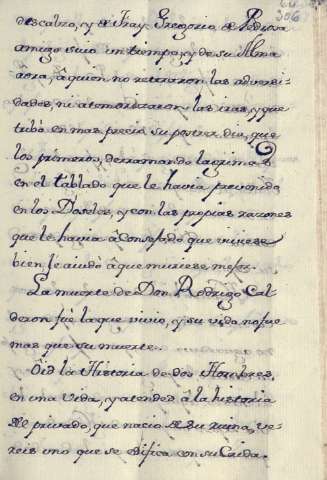 306
descalzo, y de Fray Gregorio de Pedrosa
amigo suio un tiempo, y de su Alma
aóra, à quien no retiraron las adversi-
dades, ni atemorizaron las iras, y que
tubo en mas precio su postrer dia, que
los primeros, derramando lagrimas
en el tablado que le havia prevenido
en los Doseles, y con las propias razones
que le havia àconsejado que viviese
bien, le aiudò à que muriese mejor.
La muerte de Don Rodrigo Cal
deron fuè la que vivio, y su vida no fue
mas que su muerte.
Oid la Historia de dos Hombres,
en una vida, y atended à la historia
del privado, que nacio de su ruina, ve-
reis uno que se edifica con su Caida.